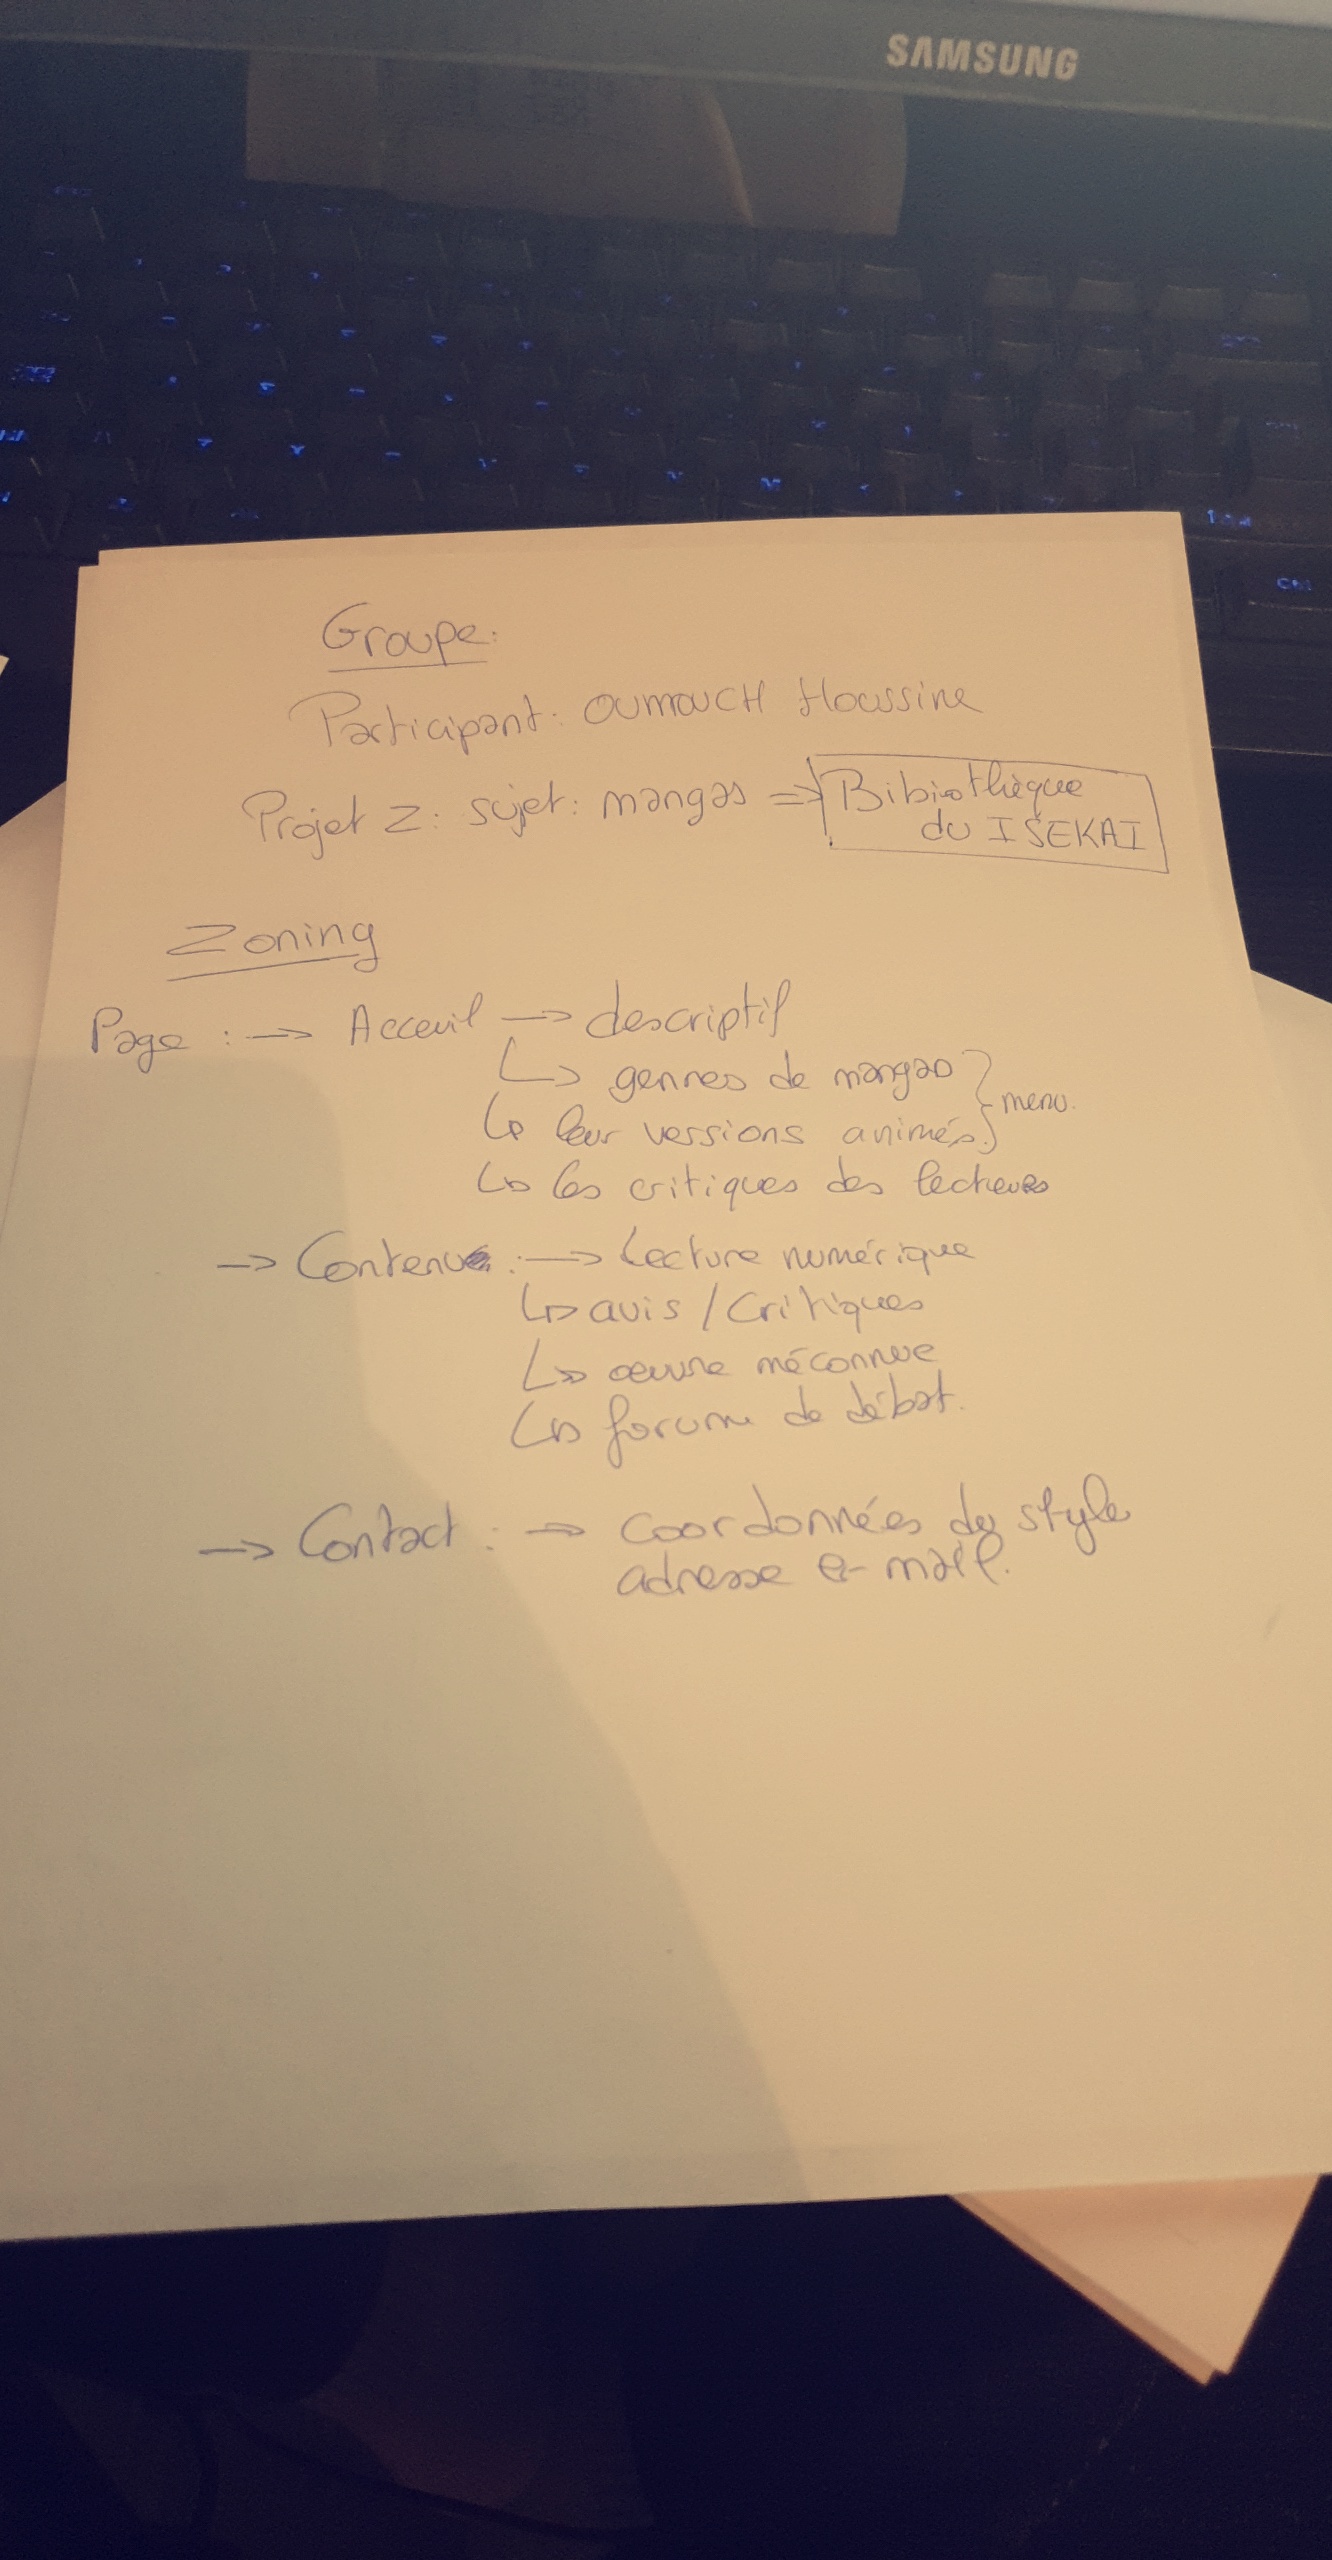 SAMSUNG
Groupe:
Participant: OUMOUCH Houssine
Projet Z: sujet: mangas => Bibiothèque
du ISEKAI
Zoning
Page : -> Acceuil -> descriptif
↳ genres de mangas } menu.
↳ leur versions animés }
↳ les critiques des lecteurs
-> Contenu : -> Lecture numérique
↳ avis / Critiques
↳ œuvre méconnue
↳ forum de débat.
-> Contact : -> coordonnées de style
adresse e-mail.